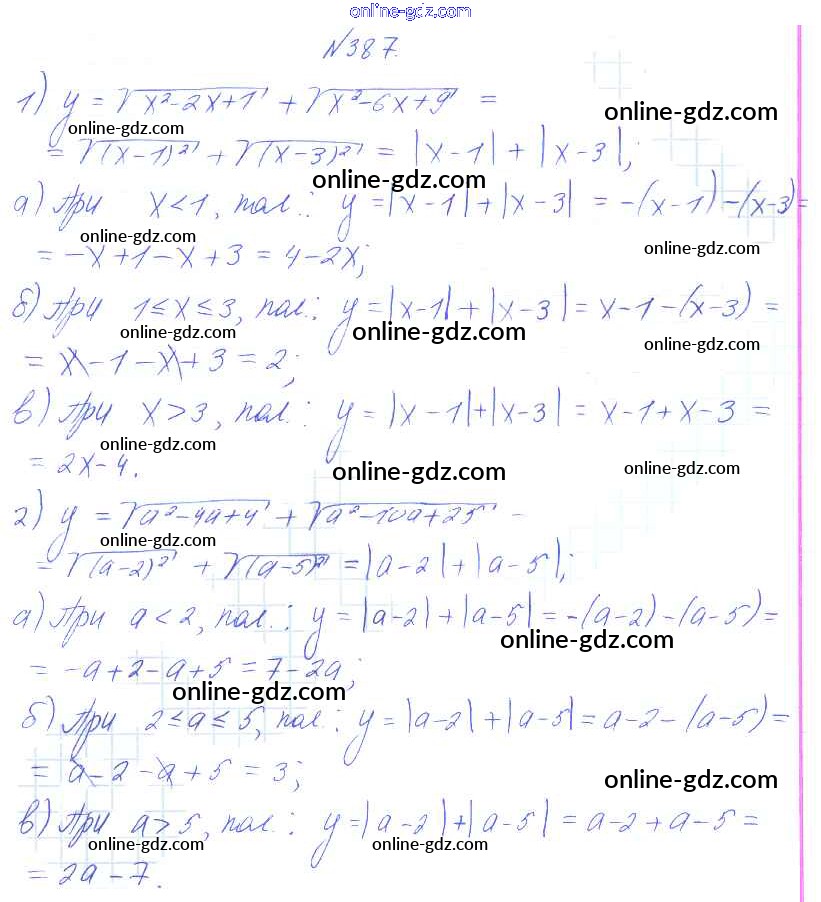 online-gdz.com
№387.
1) y = √(x²-2x+1) + √(x²-6x+9) =
online-gdz.com
online-gdz.com
= √((x-1)²) + √((x-3)²) = |x-1| + |x-3|;
online-gdz.com
а) При x<1, пол.: y = |x-1| + |x-3| = -(x-1)-(x-3) =
online-gdz.com
online-gdz.com
= -x+1-x+3 = 4-2x;
б) При 1≤x≤3, пол.: y = |x-1| + |x-3| = x-1-(x-3) =
online-gdz.com
online-gdz.com
online-gdz.com
= x-1-x+3 = 2;
в) При x>3, пол.: y = |x-1|+|x-3| = x-1+x-3 =
online-gdz.com
online-gdz.com
online-gdz.com
= 2x-4.
2) y = √(a²-4a+4) + √(a²-10a+25) =
online-gdz.com
= √((a-2)²) + √((a-5)²) = |a-2|+|a-5|;
а) При a<2, пол.: y = |a-2|+|a-5| = -(a-2)-(a-5) =
online-gdz.com
= -a+2-a+5 = 7-2a;
online-gdz.com
б) При 2≤a≤5, пол.: y = |a-2|+|a-5| = a-2-(a-5) =
= a-2-a+5 = 3;
online-gdz.com
в) При a>5, пол.: y = |a-2|+|a-5| = a-2+a-5 =
online-gdz.com
online-gdz.com
= 2a-7.